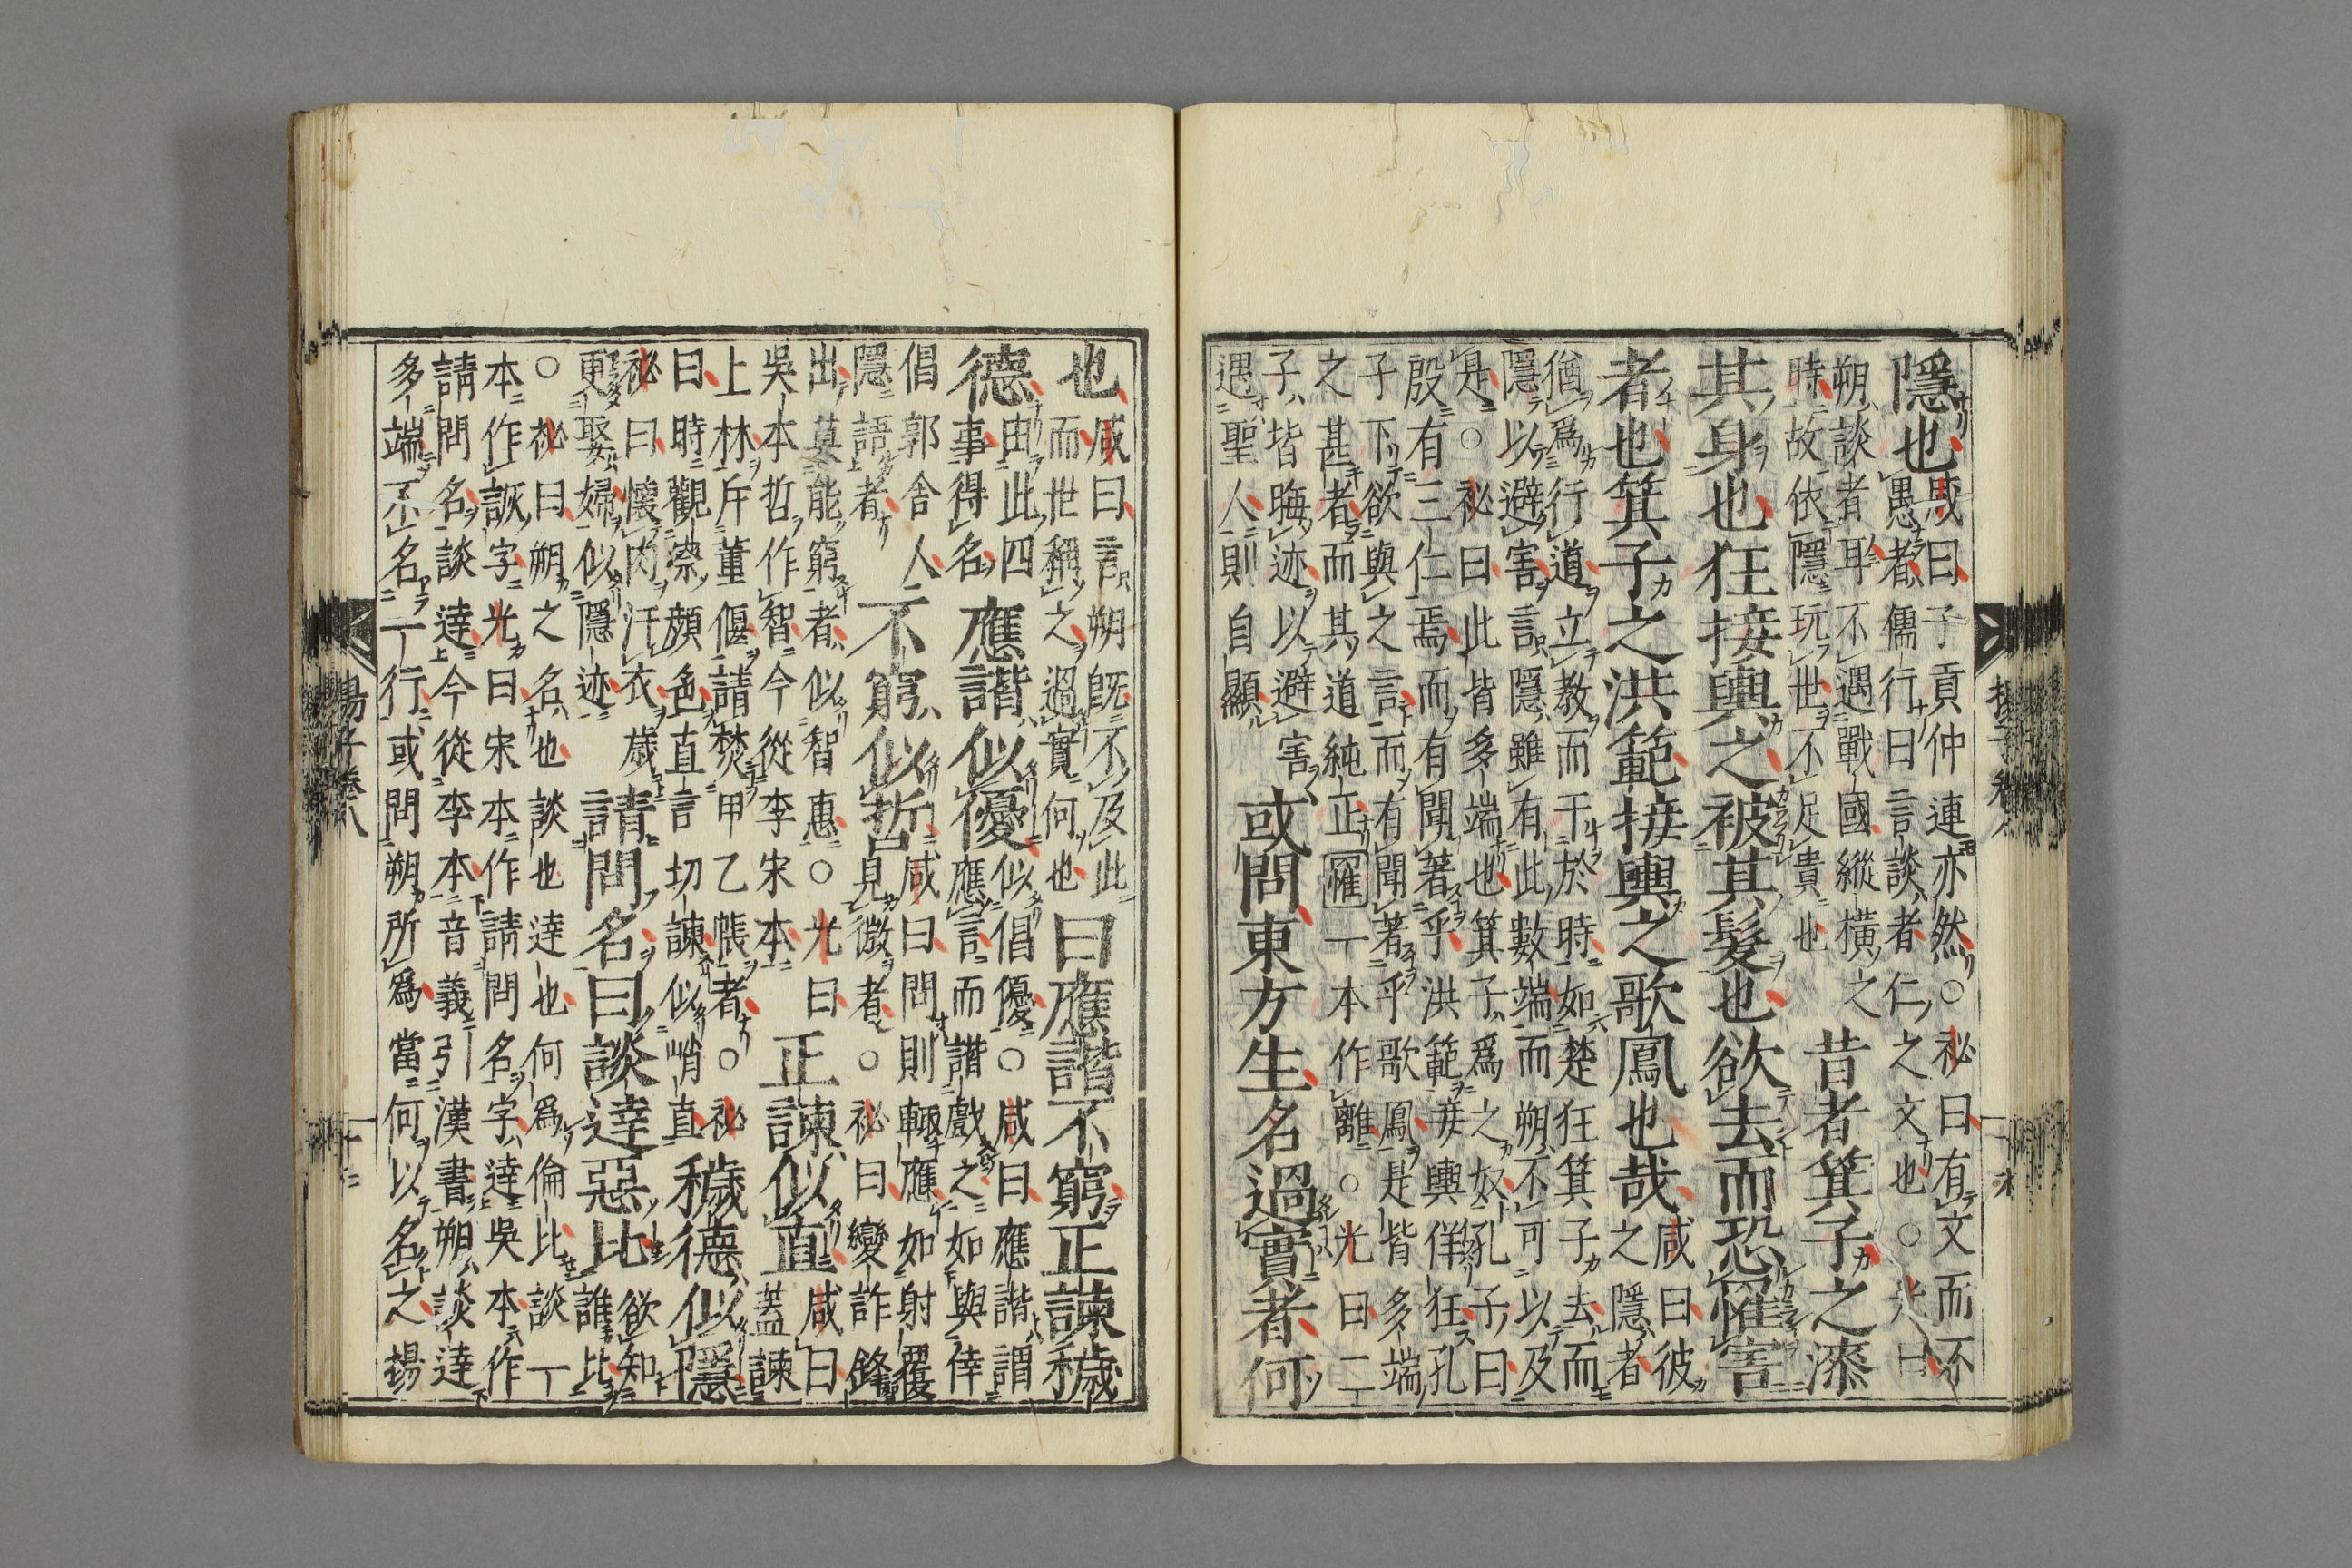 隱也咸曰子貢仲連亦然○祕曰有文而不
愚者儒行曰言談者仁之文也○光曰
朔談者耳不遇戰國縱橫之
時故依隱玩世不足貴也
昔者箕子之漆
其身也狂接輿之被其髮也欲去而恐罹害
者也箕子之洪範接輿之歌鳳也哉咸曰彼
之隱者
猶爲行道立教而干於時如楚狂箕子去而
隱以避害言隱雖有此數端而朔不可以及
是○祕曰此皆多端也箕子爲之奴孔子曰
殷有三仁焉而有聞著乎洪範接輿佯狂孔
子下欲與之言而有聞著乎歌鳳是皆多端
之甚者而其道純正罹一本作離○光曰二
子皆晦迹以避害
遇聖人則自顯
或問東方生名過實者何
也咸曰言朔旣不及此
而世稱之過實何也
曰應諧不窮正諫穢
德由此四
事得名
應諧似優似倡優○咸曰應諧謂
應言而諧戲之如與倖
倡郭舍人
隱語者
不窮似哲咸曰問則輒應如射覆
見微者○祕曰變詐鋒
出莫能窮者似智惠○光曰
吳本哲作智今從李宋本
正諫似直咸曰
蓋諫
上林斥董偃請焚甲乙帳者○祕
曰時觀察顏色直言切諫似峭直
穢德似隱
祕曰懷肉汙衣歲
更娶婦似隱迹
請問名曰談達惡比欲知
誰比
○祕曰朔之名也談也達也何爲倫比談一
本作詼字光曰宋本作請問名字達吳本作
請問名談達今從李本音義引漢書朔談達
多端不名一行或問朔所爲當何以名之揚
揚子卷八
十二